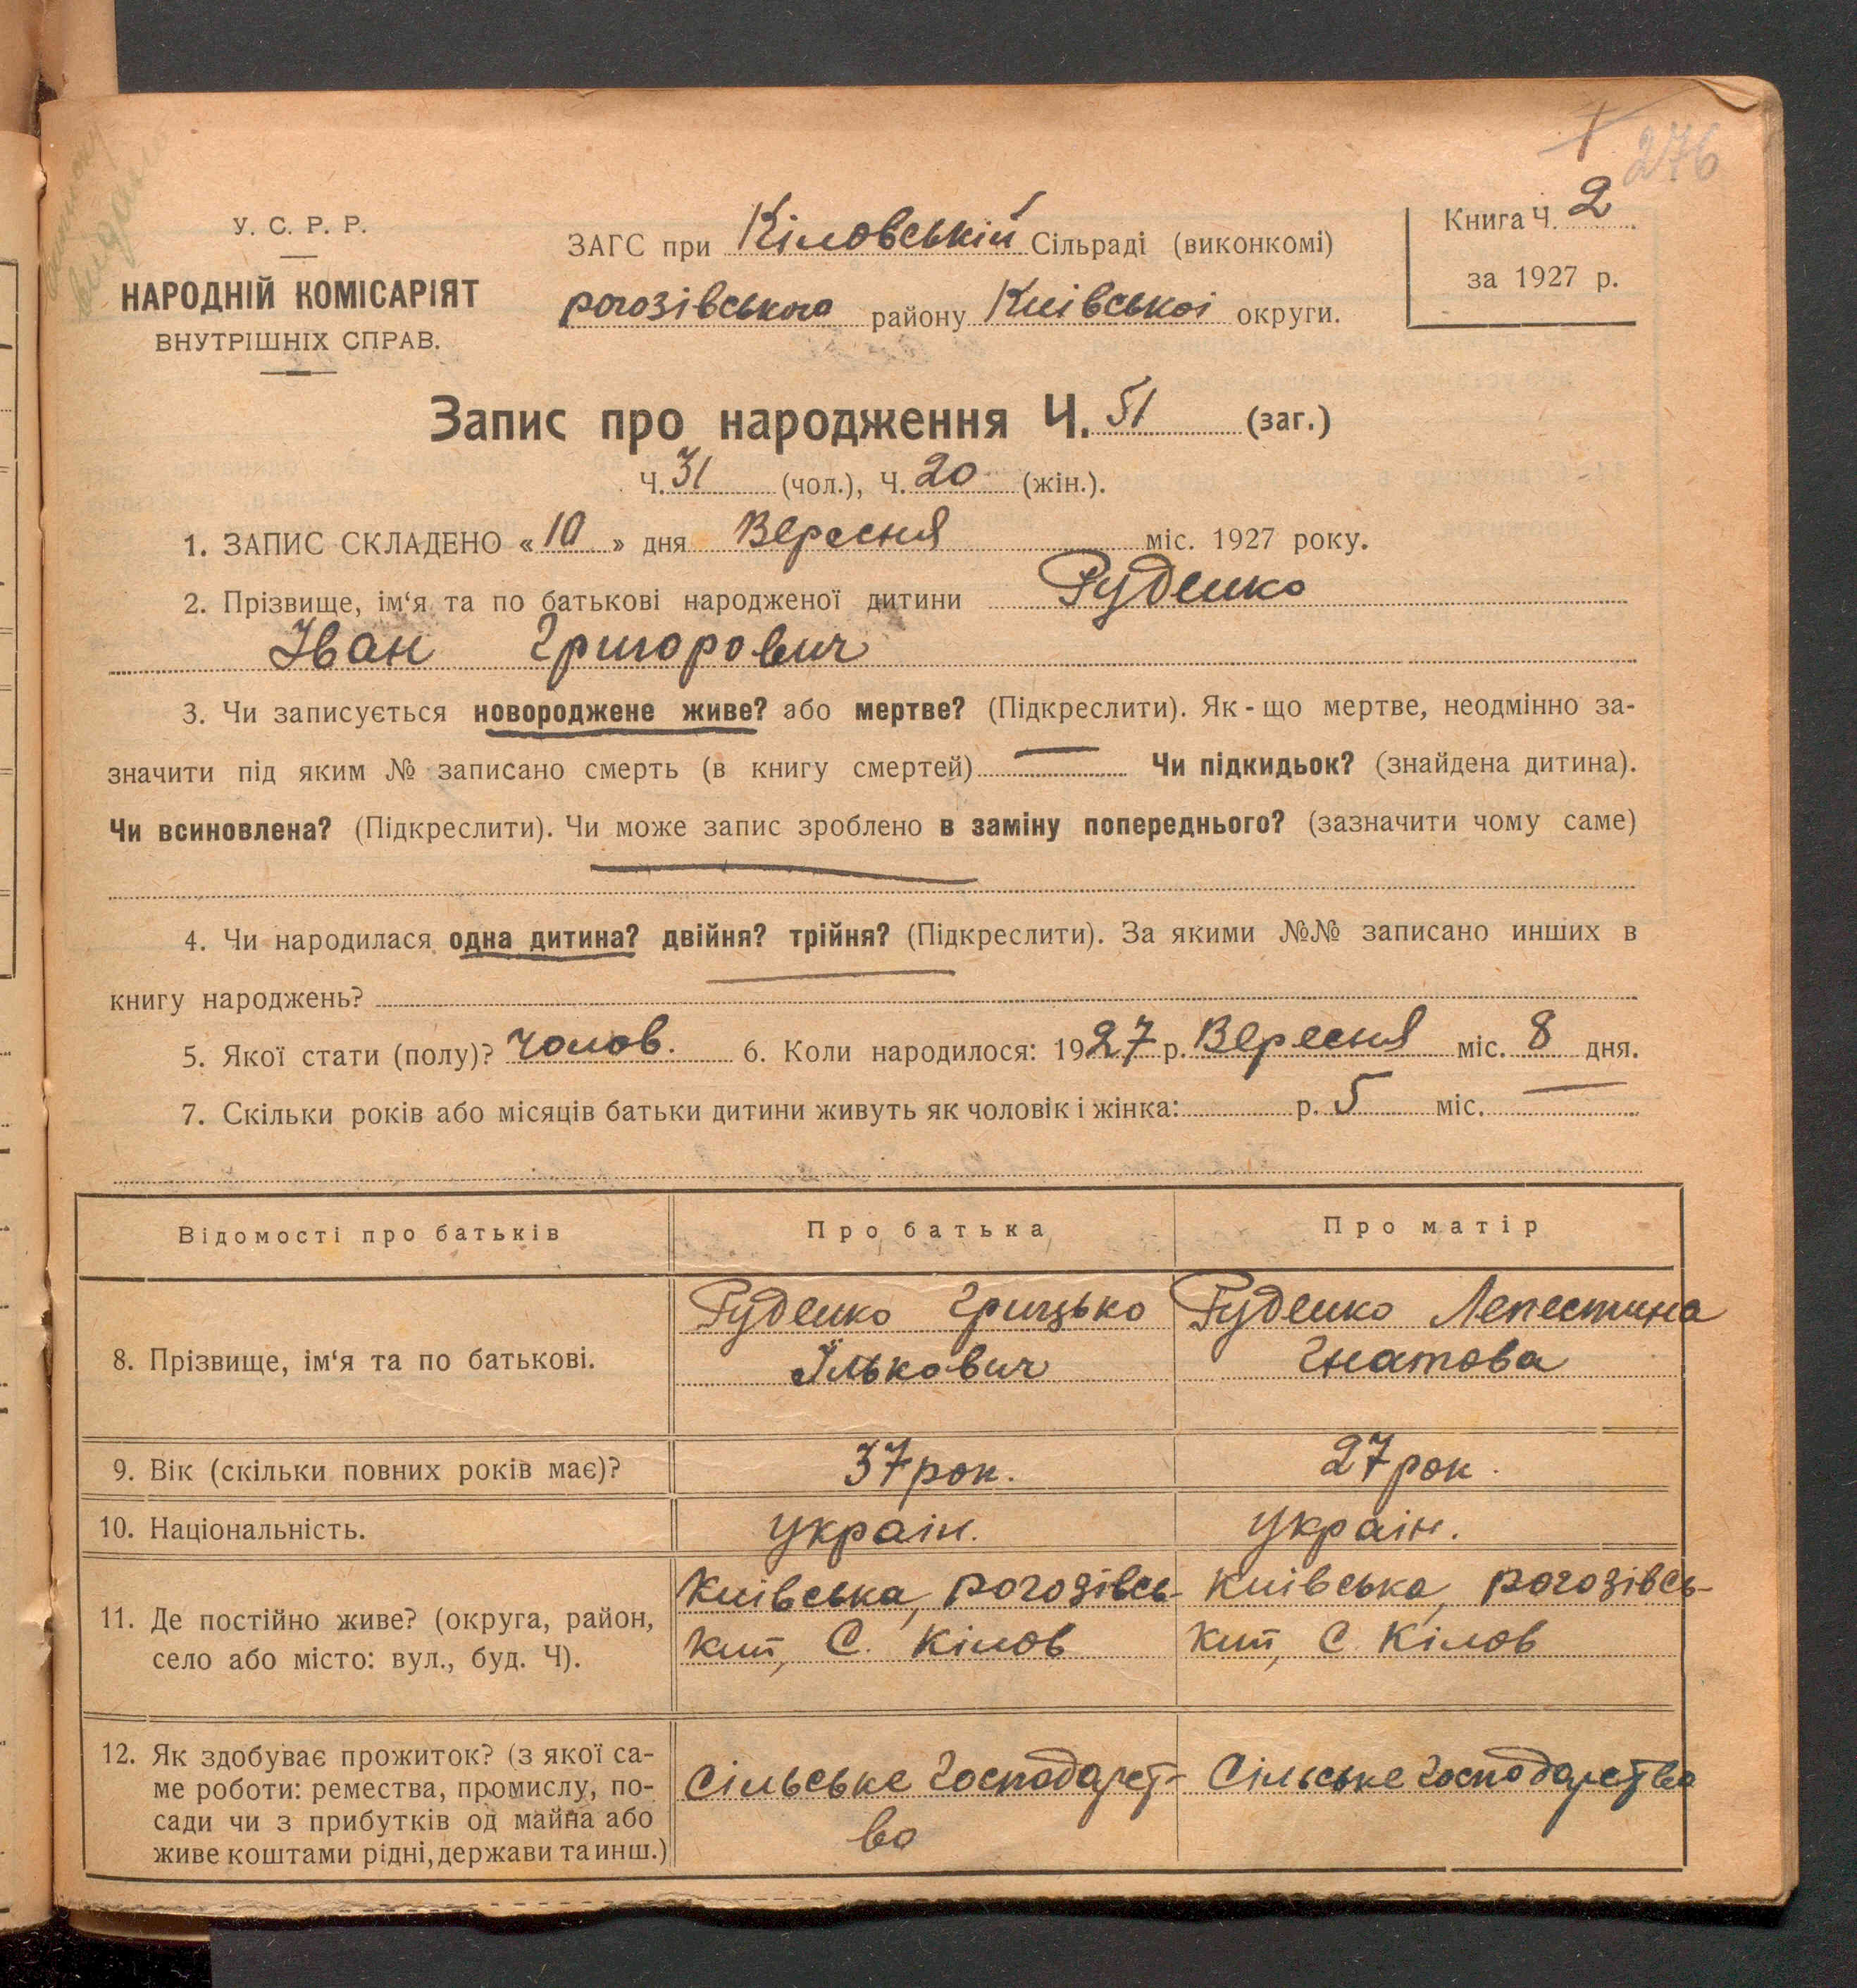 1
276
У. С. Р. Р.
НАРОДНІЙ КОМІСАРІЯТ
ВНУТРІШНІХ СПРАВ.
ЗАГС при Кіловській Сільраді (виконкомі)
рогозівського району Київської округи.
Книга Ч. 2
за 1927 р.
Запис про народження Ч. 51 (заг.)
Ч. 31 (чол.), Ч. 20 (жін.).
1. ЗАПИС СКЛАДЕНО «10» дня Вересня міс. 1927 року.
2. Прізвище, ім‘я та по батькові народженої дитини Руденко
Іван Григорович
3. Чи записується новороджене живе? або мертве? (Підкреслити). Як-що мертве, неодмінно за-
значити під яким № записано смерть (в книгу смертей) — Чи підкидьок? (знайдена дитина).
Чи всиновлена? (Підкреслити). Чи може запис зроблено в заміну попереднього? (зазначити чому саме)
4. Чи народилася одна дитина? двійня? трійня? (Підкреслити). За якими №№ записано инших в
книгу народжень?
5. Якої стати (полу)? Чолов. 6. Коли народилося: 1927 р. Вересня міс. 8 дня.
7. Скільки років або місяців батьки дитини живуть як чоловік і жінка: р. 5 міс. —
Відомості про батьків Про батька Про матір
8. Прізвище, ім‘я та по батькові.
Руденко Грицько
Ількович
Руденко Лепестина
Гнатова
9. Вік (скільки повних років має)? 37 рок. 27 рок.
10. Національність. Україн. Україн.
11. Де постійно живе? (округа, район,
село або місто: вул., буд. Ч).
Київська, рогозівсь-
кий, С. Кілов
Київська, рогозівсь-
кий, С. Кілов
12. Як здобуває прожиток? (з якої са-
ме роботи: ремества, промислу, по-
сади чи з прибутків од майна або
живе коштами рідні, держави та инш.)
Сільське господарст-
во
Сільське господарство